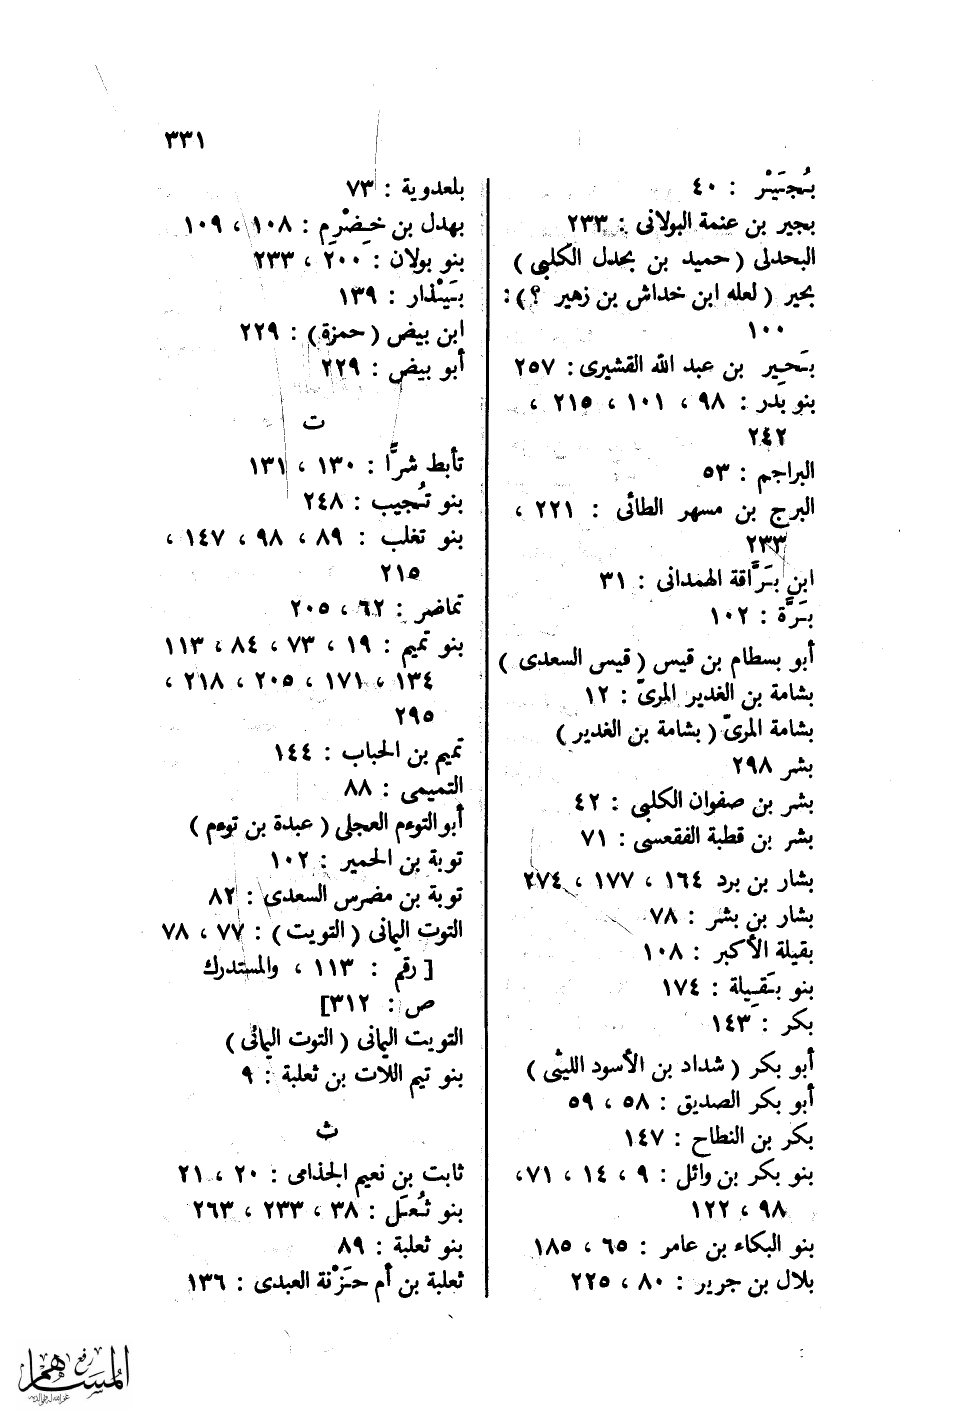 ٣٣١
بُجَيْر : ٤٠
بجير بن عنمة البولانى : ٢٣٣
البحدلى ( حميد بن بحدل الكلبى )
بحير ( لعله ابن خداش بن زهير ؟ ) :
١٠٠
بَحِير بن عبد الله القشيرى : ٢٥٧
بنو بدر : ٩٨ ، ١٠١ ، ٢١٥ ،
٢٤٢
البراجم : ٥٣
البرج بن مسهر الطائى : ٢٢١ ،
٢٣٣
ابن بَرَّاقة الهمدانى : ٣١
بَرَّة : ١٠٢
أبو بسطام بن قيس ( قيس السعدى )
بشامة بن الغدير المرىّ : ١٢
بشامة المرىّ ( بشامة بن الغدير )
بشر ٢٩٨
بشر بن صفوان الكلبى : ٤٢
بشر بن قطبة الفقعسى : ٧١
بشار بن برد ١٦٤ ، ١٧٧ ، ٢٧٤
بشار بن بشر : ٧٨
بقيلة الأكبر : ١٠٨
بنو بَقِيلة : ١٧٤
بكر : ١٤٣
أبو بكر ( شداد بن الأسود الليثى )
أبو بكر الصديق : ٥٨ ، ٥٩
بكر بن النطاح : ١٤٧
بنو بكر بن وائل : ٩ ، ١٤ ، ٧١ ،
٩٨ ، ١٢٢
بنو البكاء بن عامر : ٦٥ ، ١٨٥
بلال بن جرير : ٨٠ ، ٢٢٥
بلعدوية : ٧٣
بهدل بن خِضْرِم : ١٠٨ ، ١٠٩
بنو بولان : ٢٠٠ ، ٢٣٣
بَيْذار : ١٣٩
ابن بيض ( حمزة ) : ٢٢٩
أبو بيض : ٢٢٩
ت
تأبط شرًّا : ١٣٠ ، ١٣١
بنو تُجيب : ٢٤٨
بنو تغلب : ٨٩ ، ٩٨ ، ١٤٧ ،
٢١٥
تماضر : ٦٢ ، ٢٠٥
بنو تميم : ١٩ ، ٧٣ ، ٨٤ ، ١١٣
١٣٤ ، ١٧١ ، ٢٠٥ ، ٢١٨ ،
٢٩٥
تميم بن الحباب : ١٤٤
التميمى : ٨٨
أبو التوءم العجلى ( عبدة بن توءم )
توبة بن الحمير : ١٠٢
توبة بن مضرس السعدى : ٨٢
التوت اليمانى ( التويت ) : ٧٧ ، ٧٨
[ رقم : ١١٣ ، والمستدرك
ص : ٣١٢]
التويت اليمانى ( التوت اليمانى )
بنو تيم اللات بن ثعلبة : ٩
ث
ثابت بن نعيم الجذامى : ٢٠ ، ٢١
بنو ثُعَل : ٣٨ ، ٢٣٣ ، ٢٦٣
بنو ثعلبة : ٨٩
ثعلبة بن أم حَزْنة العبدى : ١٣٦
رفع
المساهم